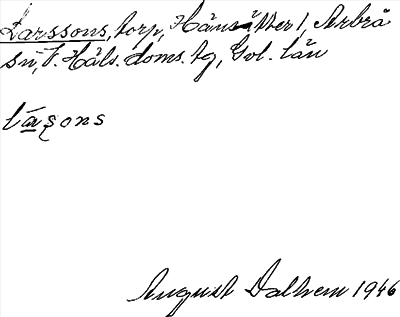 Larssons, torp, Hänsätter 1, Arbrå
sn, V. Häls. doms. tg, Gvl. län
la̲s̨ons
August Dalhem 1946